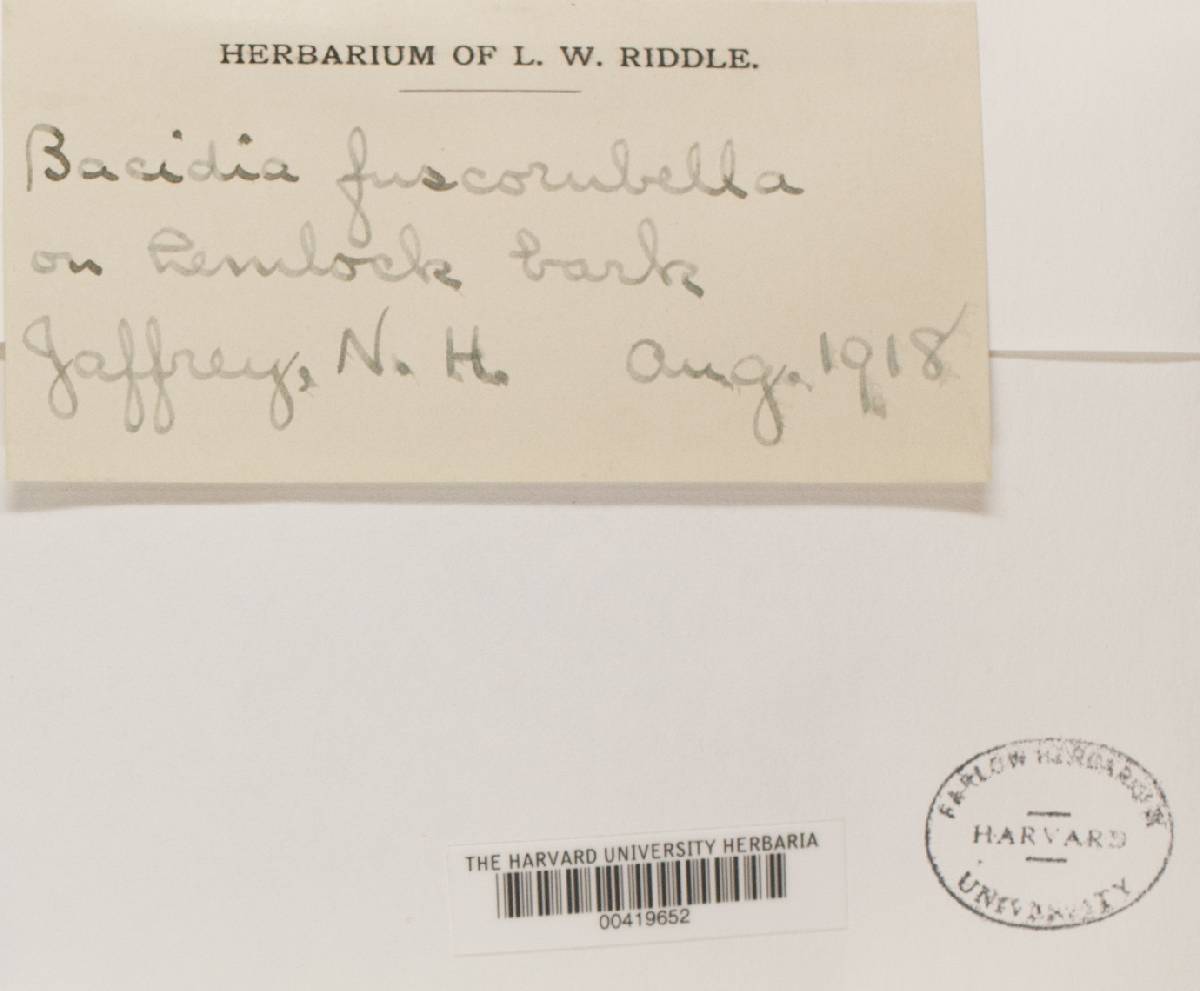 HERBARIUM OF L. W. RIDDLE.
Bacidia fuscorubella
on hemlock bark
Jaffrey, N. H. Aug. 1918
FARLOW HERBARIUM
HARVARD
UNIVERSITY
THE HARVARD UNIVERSITY HERBARIA
00419652